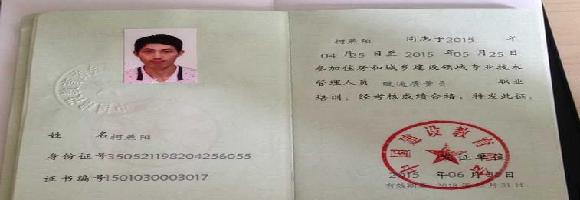 姓 名 柯燕阳
身份证号350521198204256055
证书编号1501030003017
柯燕阳 同志于2015 年
04月25日至2015年05月25日
参加住房和城乡建设领域专业技术
管理人员 暖通质量员 职业
培训，经考核成绩合格，特发此证。
中国建设教育协会
发证单位
2015 年06月